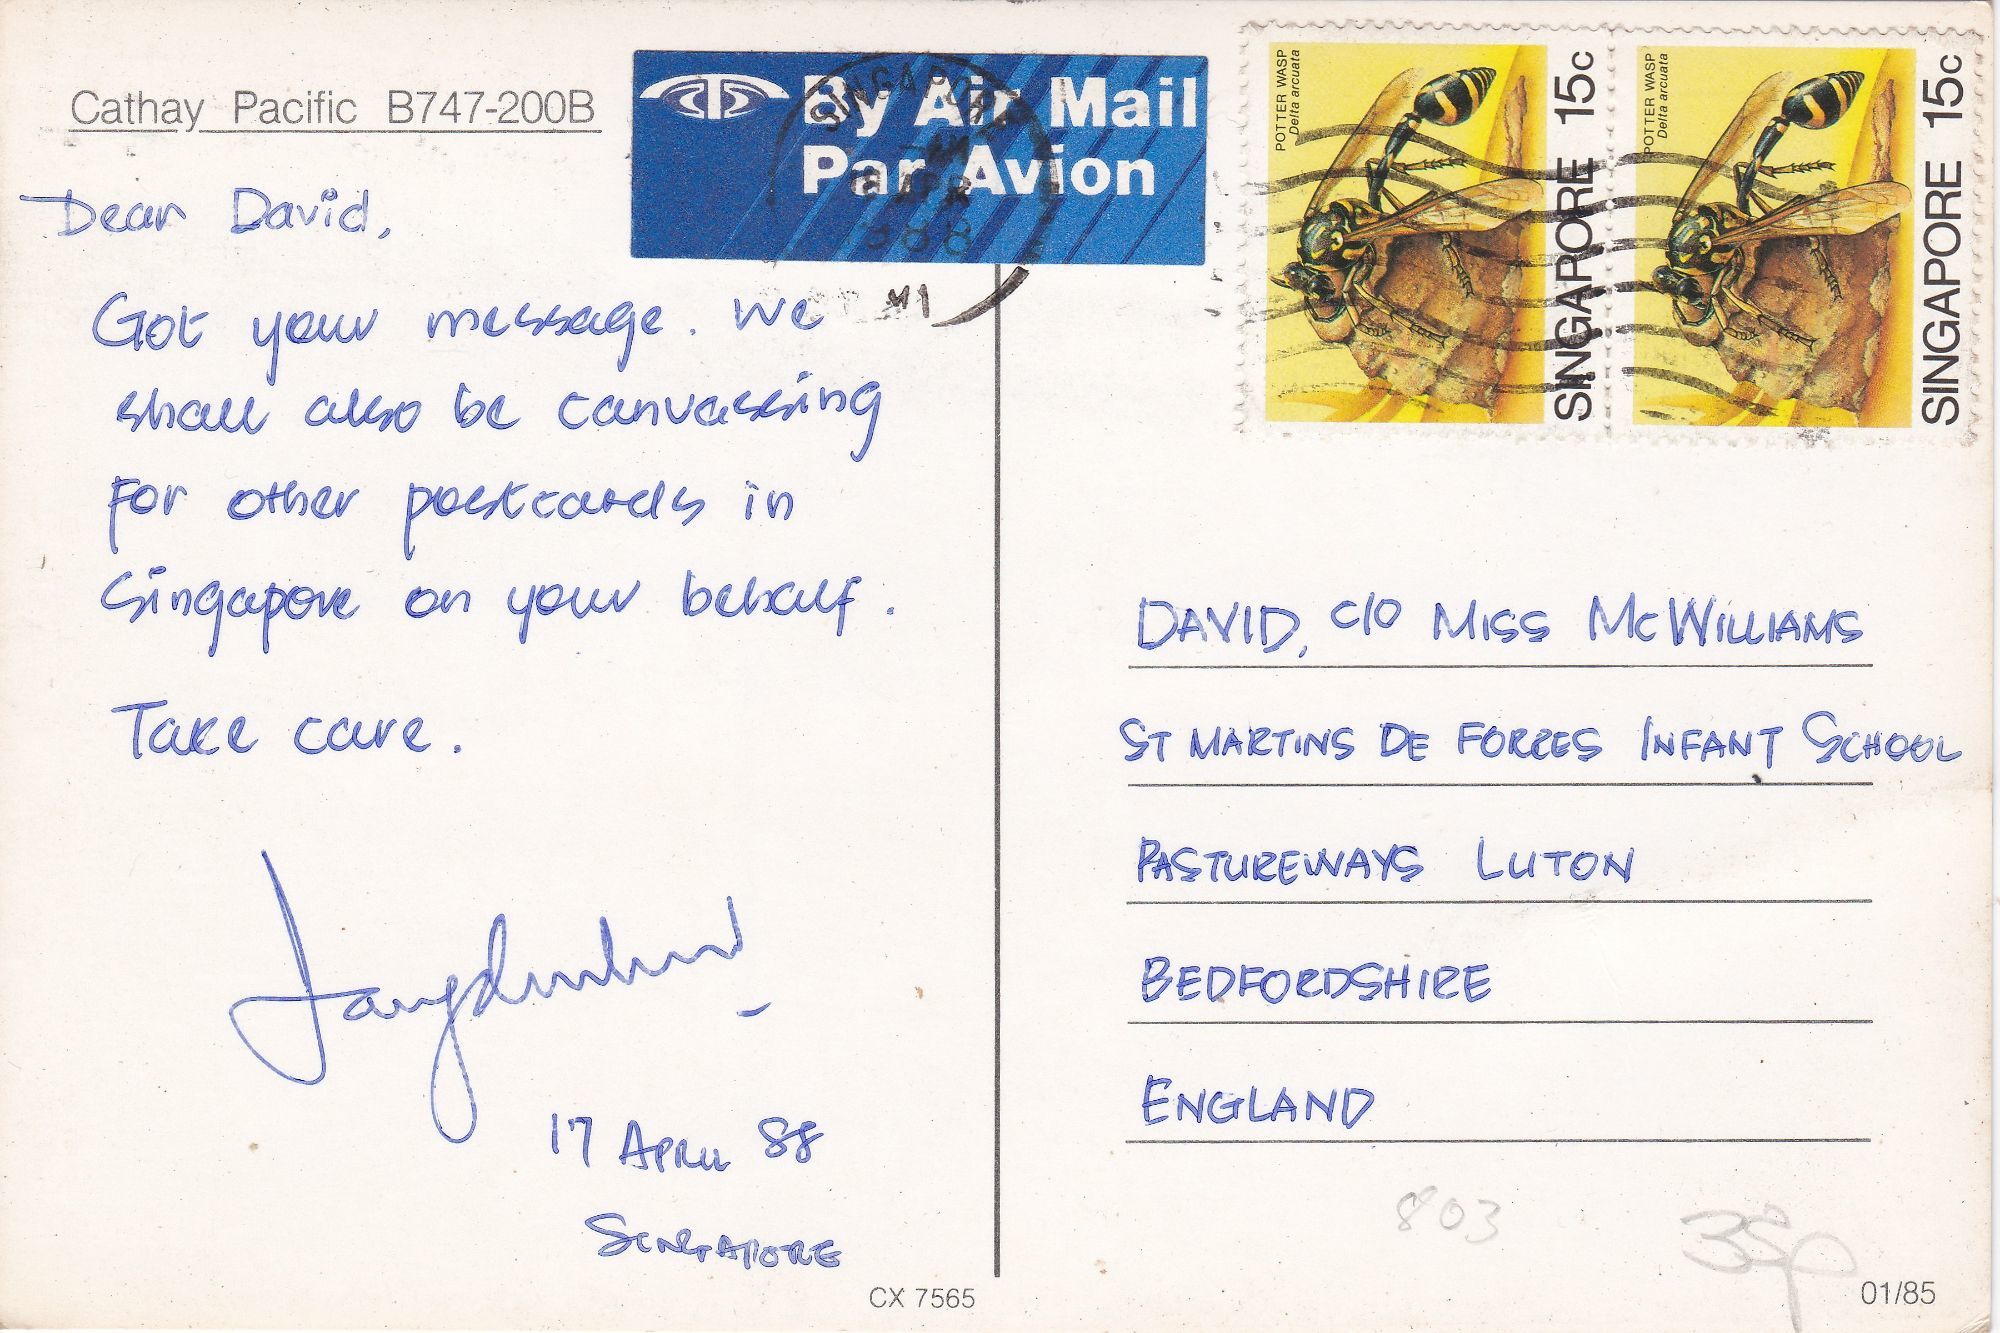 Cathay Pacific B747-200B
By Air Mail
Par Avion
SINGAPORE
18 APR
1988
POTTER WASP
Delta arcuata
SINGAPORE 15c
POTTER WASP
Delta arcuata
SINGAPORE 15c
Dear David,
Got your message. We
shall also be canvassing
for other postcards in
Singapore on your behalf.
Take care.
17 APRIL 88
SINGAPORE
DAVID, C/O MISS MCWILLIAMS
ST MARTINS DE FORRES INFANT SCHOOL
PASTUREWAYS LUTON
BEDFORDSHIRE
ENGLAND
803
35p
CX 7565
01/85